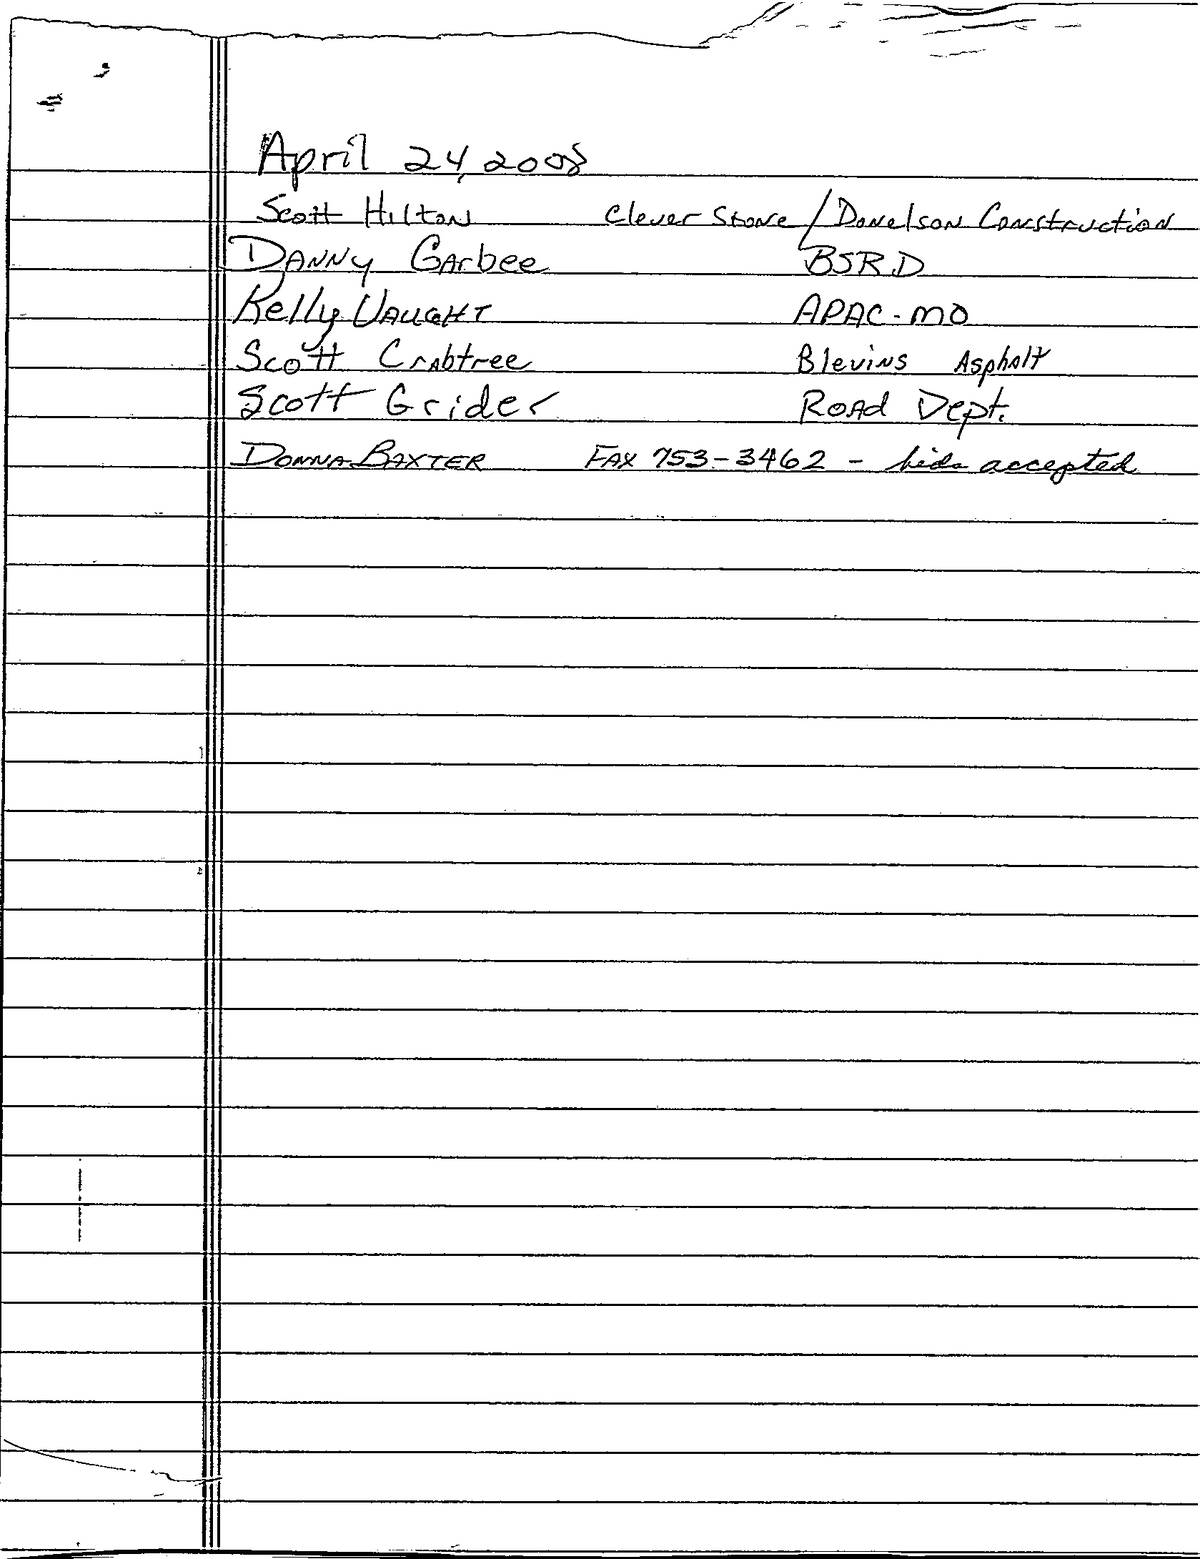 April 24, 2008
Scott Hilton Clever Stone / Donelson Construction
Danny Garbee BSRD
Kelly Vaught APAC-MO
Scott Crabtree Blevins Asphalt
Scott Grider Road Dept.
Donna Baxter Fax 753-3462 - bids accepted